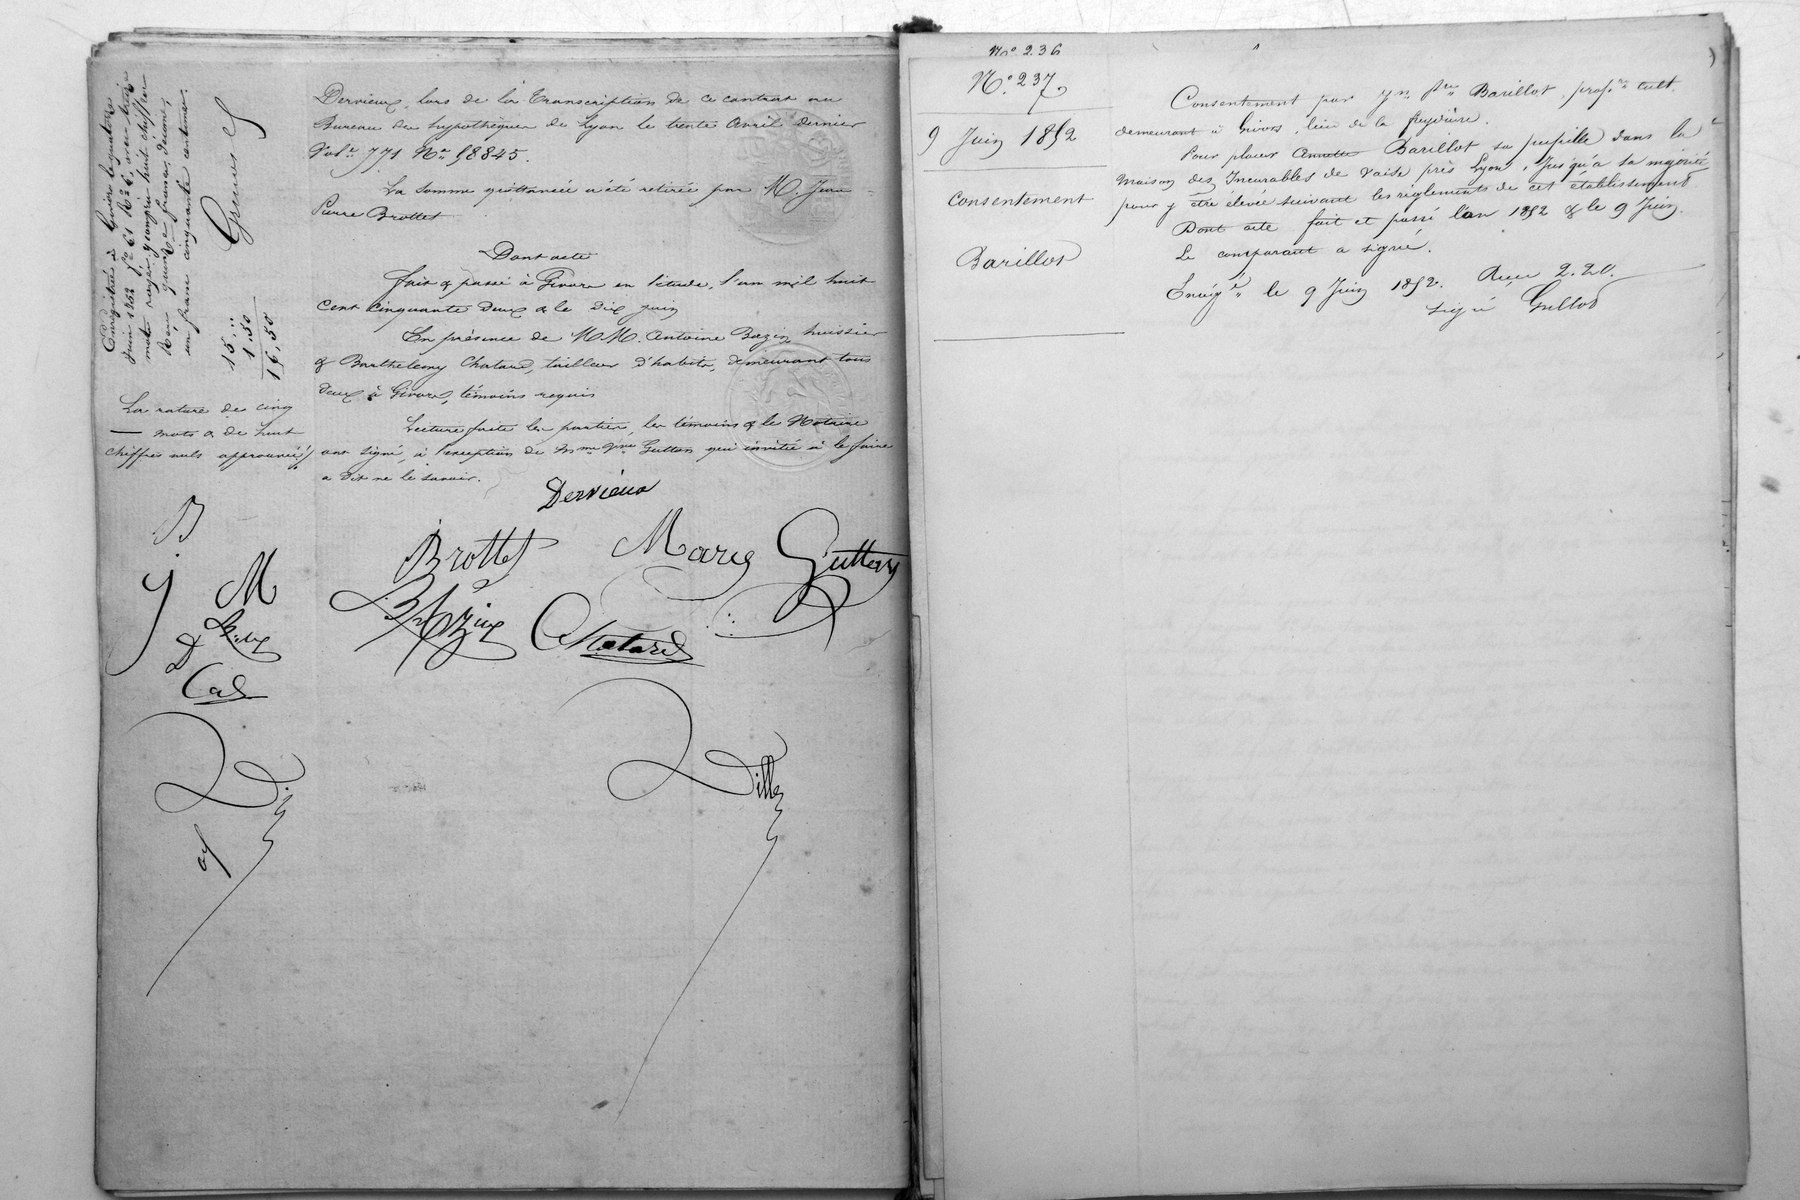 Dervieux, lors de la Transcription de ce contrat au
Bureau des hypothèques de Lyon le trente Avril dernier
Vol.e 771 N.o 58845.
La somme quittancée a été retirée par M. Jean
Pierre Brottet
Dont acte
fait & passé à Givors en l'étude, l'an mil huit
cent cinquante deux & le Dix juin
En présence de M.M. Antoine Bazin huissier
& Barthelemy Chatard, tailleur d'habits, demeurant tous
deux à Givors, témoins requis
Lecture faite les parties, les témoins & le Notaire
ont signé, à l'exception de Mme Vve Gutton qui invitée à le faire
a dit ne le savoir.
Enregistré à Givors le quatorze
Juin 1852 f.o 61 R.o
un franc cinquante centimes.
15, "
1.50
16,50
La rature de cinq
mots & de huit
chiffres nuls approuvée
Dervieux
Brottet Marie Gutton
Bazin Chatard
B
J M
D
Ca
N.o 236
N.o 237
9 Juin 1852
Consentement
Barillot
Consentement par Barillot
demeurant à Givors, lieu de la
Pour placer Annette Barillot sa pupille dans la
maison des Incurables de Vaise près Lyon, Jusqu'à sa majorité
pour y être élevée suivant les règlements de cet établissement
Dont acte fait et passé l'an 1852 & le 9 Juin.
Le comparant a signé.
Enreg.é le 9 Juin 1852. Reçu 2.20.
signé